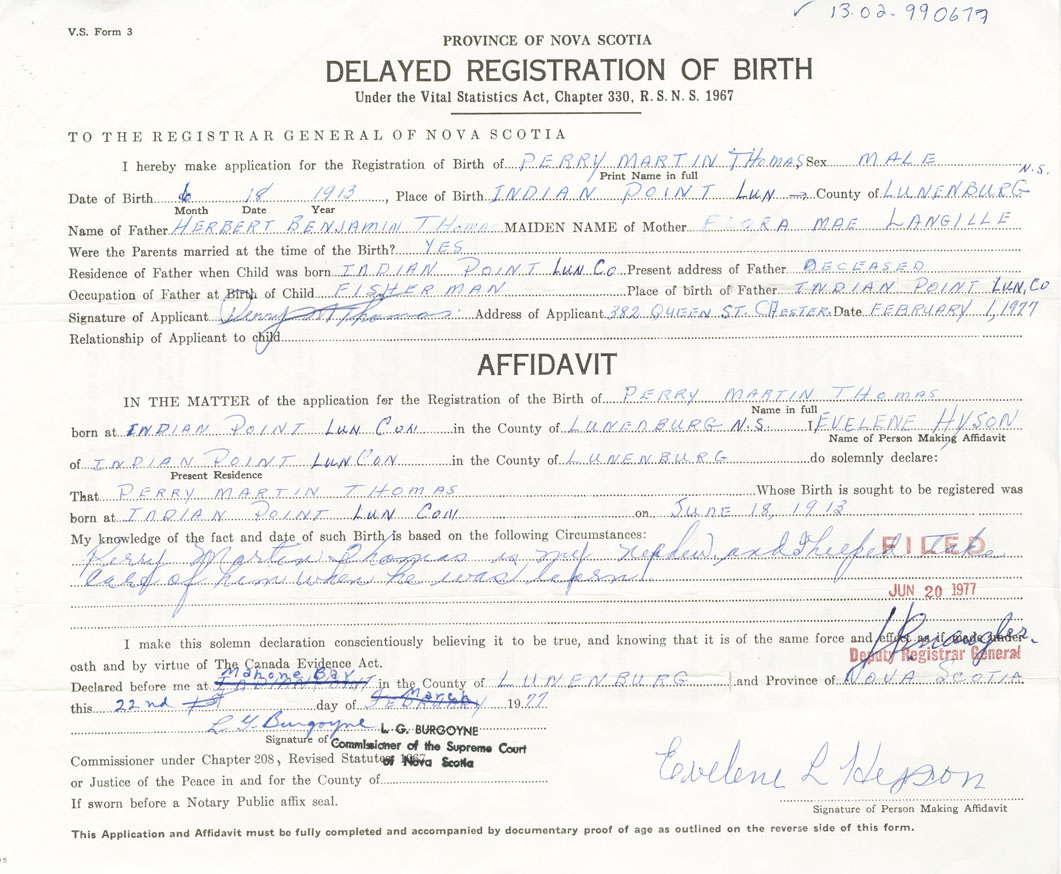 ✓ 13-02-990677
V.S. Form 3
PROVINCE OF NOVA SCOTIA
DELAYED REGISTRATION OF BIRTH
Under the Vital Statistics Act, Chapter 330, R.S.N.S. 1967
TO THE REGISTRAR GENERAL OF NOVA SCOTIA
I hereby make application for the Registration of Birth of PERRY MARTIN THOMAS Sex MALE
Print Name in full N.S.
Date of Birth 6 18 1913, Place of Birth INDIAN POINT LUN → County of LUNENBURG
Month Date Year
Name of Father HERBERT BENJAMIN THOMAS MAIDEN NAME of Mother FLORA MAE LANGILLE
Were the Parents married at the time of the Birth? YES
Residence of Father when Child was born INDIAN POINT LUN CO Present address of Father DECEASED
Occupation of Father at Birth of Child FISHERMAN Place of birth of Father INDIAN POINT LUN, CO
Signature of Applicant Perry M Thomas Address of Applicant 382 QUEEN ST. CHESTER. Date FEBRUARY 1, 1977
Relationship of Applicant to child
AFFIDAVIT
IN THE MATTER of the application for the Registration of the Birth of PERRY MARTIN THOMAS
Name in full
born at INDIAN POINT LUN CON in the County of LUNENBURG N.S. I EVELENE HYSON
Name of Person Making Affidavit
of INDIAN POINT LUN CON in the County of LUNENBURG do solemnly declare:
Present Residence
That PERRY MARTIN THOMAS Whose Birth is sought to be registered was
born at INDIAN POINT LUN CON on JUNE 18, 1913
My knowledge of the fact and date of such Birth is based on the following Circumstances:
Perry Martin Thomas is my nephew, and I helped take
care of him when he was born
FILED
JUN 20 1977
I make this solemn declaration conscientiously believing it to be true, and knowing that it is of the same force and effect as if made under
oath and by virtue of The Canada Evidence Act.
Deputy Registrar General
Mahone Bay
Declared before me at INDIAN POINT in the County of LUNENBURG, and Province of NOVA SCOTIA
March
this 22nd 1st day of FEBRUARY 1977
L. G. Burgoyne L. G. BURGOYNE
Signature of Commissioner of the Supreme Court
Commissioner under Chapter 208, Revised Statutes 1967 of Nova Scotia
or Justice of the Peace in and for the County of
If sworn before a Notary Public affix seal.
Evelene L Hyson
Signature of Person Making Affidavit
This Application and Affidavit must be fully completed and accompanied by documentary proof of age as outlined on the reverse side of this form.